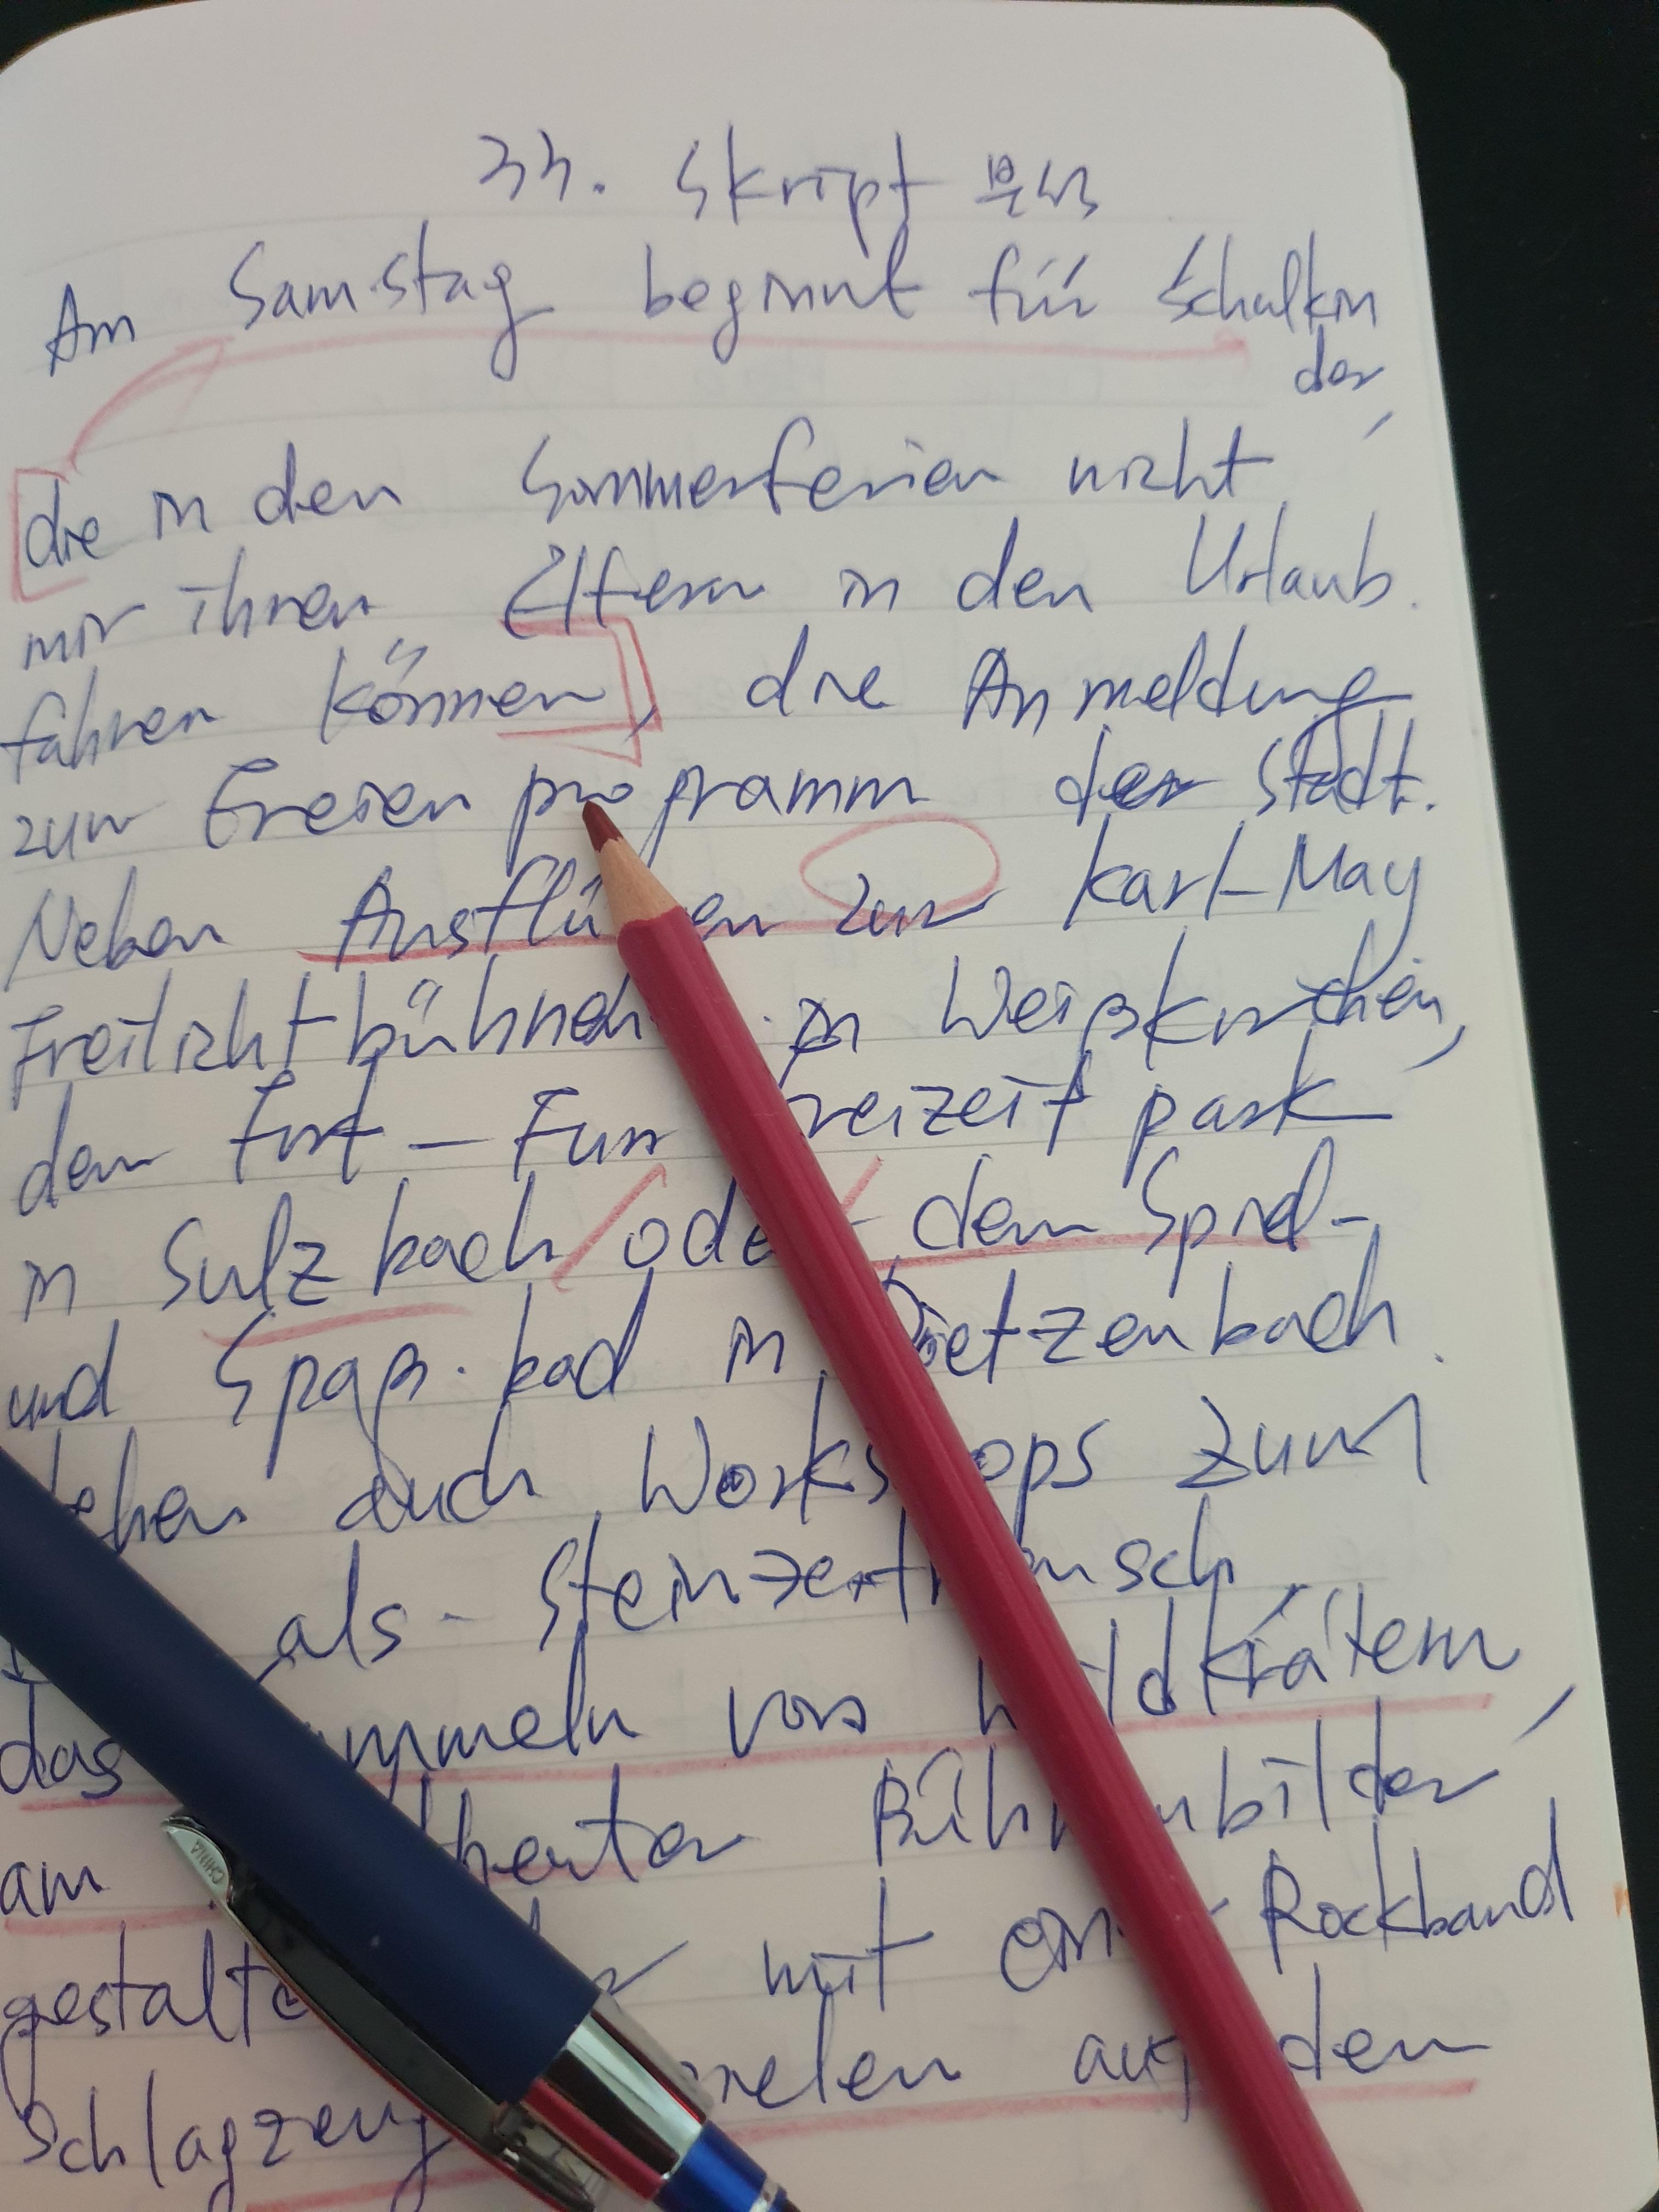 33. Skript 분석
Am Samstag beginnt für Schulkin
der,
die in den Sommerferien nicht
mit ihren Eltern in den Urlaub
fahren können, die Anmeldung
zum Ferienprogramm der Stadt.
Neben Ausflü en zur Karl-May
Freilichtbühne in Weißkirchen,
dem Fort-Fun reizeitpark
in Sulzbach oder dem Spiel-
und Spaßbad in Dietzenbach
tehen auch Works ops zum
als Steinzeitm nsch
das mmeln von W ldkräutern,
am Büh nbilder
gestalte mit ein Rockband
Schlagzeug ielen auf dem
CHINA